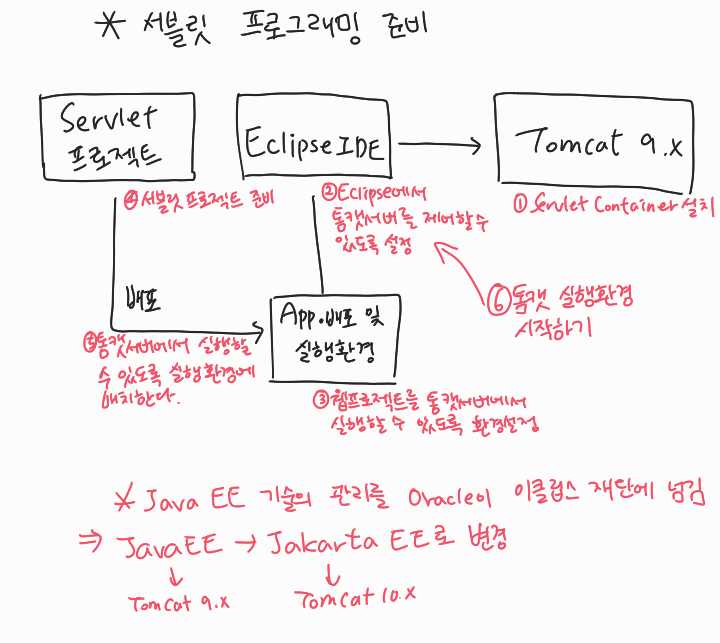 * 서블릿 프로그래밍 준비
Servlet
프로젝트
Eclipse IDE
Tomcat 9.x
④ 서블릿 프로젝트 준비
② Eclipse에서
톰캣서버를 제어할 수
있도록 설정
① Servlet Container 설치
배포
App.배포 및
실행환경
⑥ 톰캣 실행환경
시작하기
⑤ 톰캣서버에서 실행할
수 있도록 실행환경에
배치한다.
③ 웹프로젝트를 톰캣서버에서
실행할 수 있도록 환경설정
* Java EE 기술의 관리를 Oracle이 이클립스 재단에 넘김
⇒ JavaEE → Jakarta EE로 변경
↓ ↓
Tomcat 9.x Tomcat 10.x